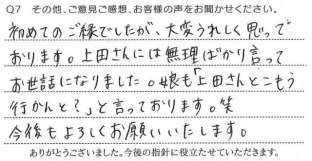 Q7 その他、ご意見ご感想、お客様の声をお聞かせください。
初めてのご縁でしたが、大変うれしく思って
おります。上田さんには無理ばかり言って
お世話になりました。娘も「上田さんとこもう
行かんと?」と言っております。笑
今後もよろしくお願いいたします。
ありがとうございました。今後の指針に役立たせていただきます。